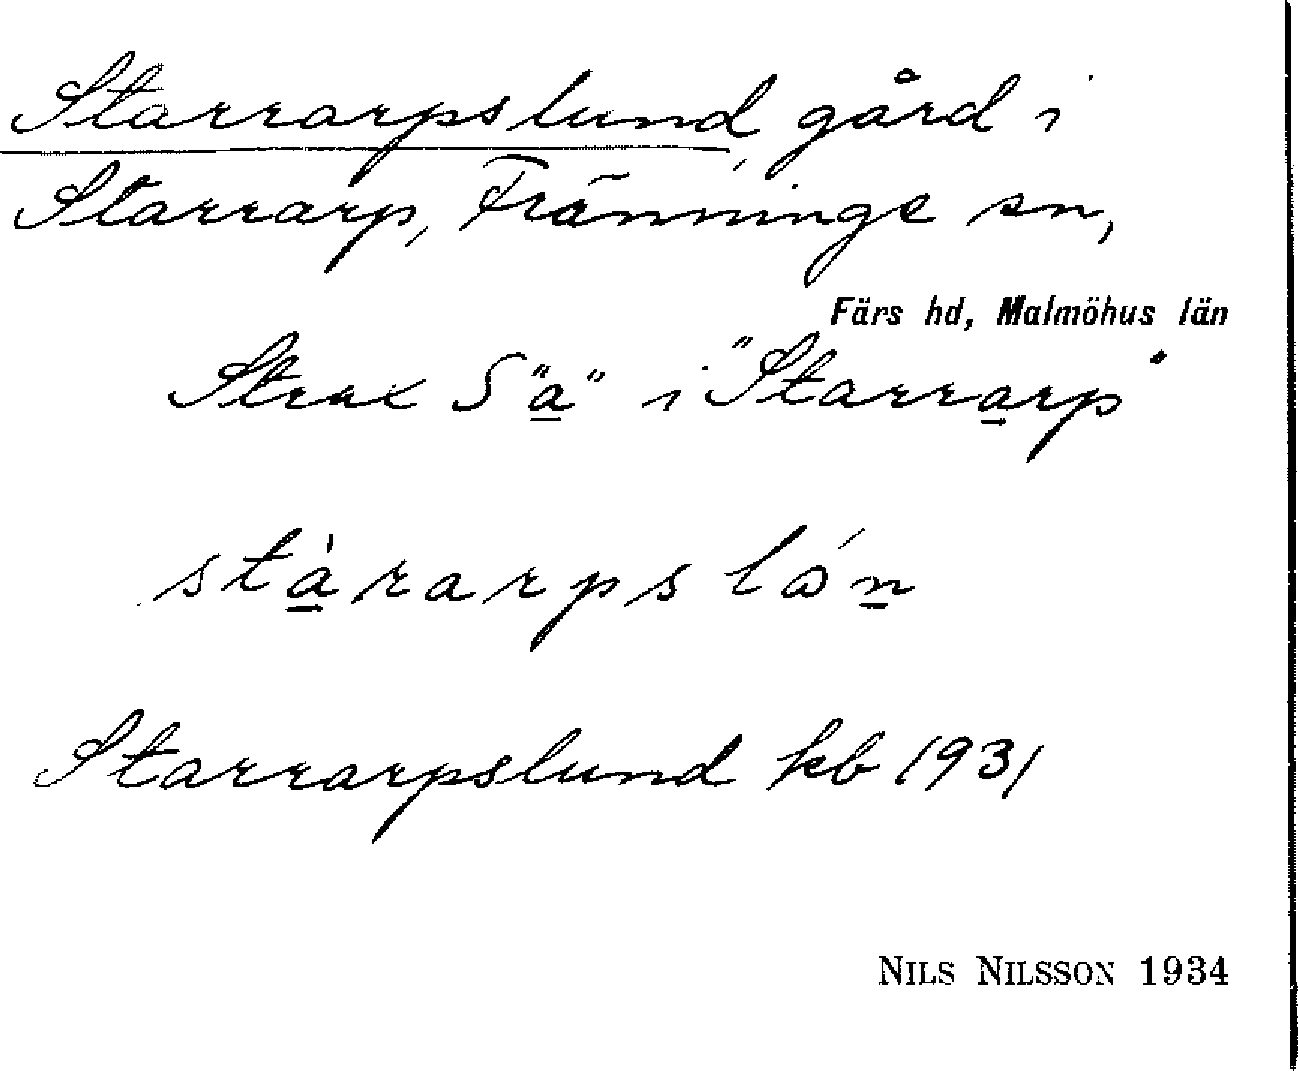 Starrarpslund, gård i
Starrarp, Fränninge sn,
Färs hd, Malmöhus län
Strax S "a" i "Starrarp"
stàrarpslón
Starrarpslund kb 1931
NILS NILSSON 1934